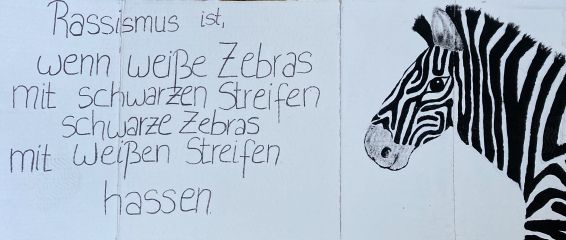 Rassismus ist,
wenn weiße Zebras
mit schwarzen Streifen
schwarze Zebras
mit weißen Streifen
hassen.